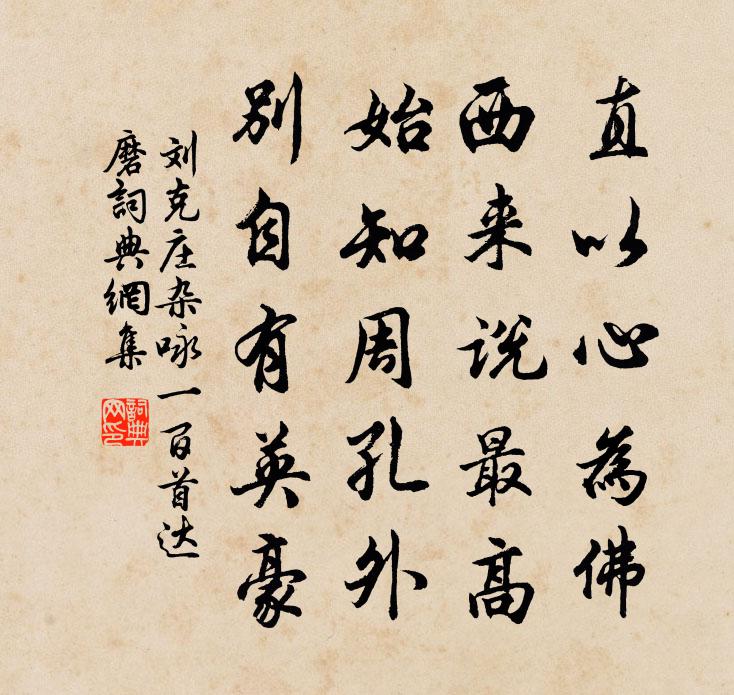 直以心為佛
西来说最高
始知周孔外
别自有英豪
刘克庄杂咏一百首达
磨詞典網集
詞典网印